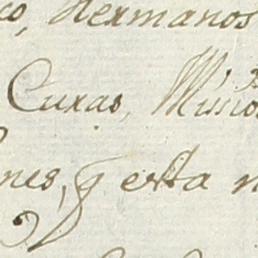 co, Hermanos
Curas, Minis
nes, y esta